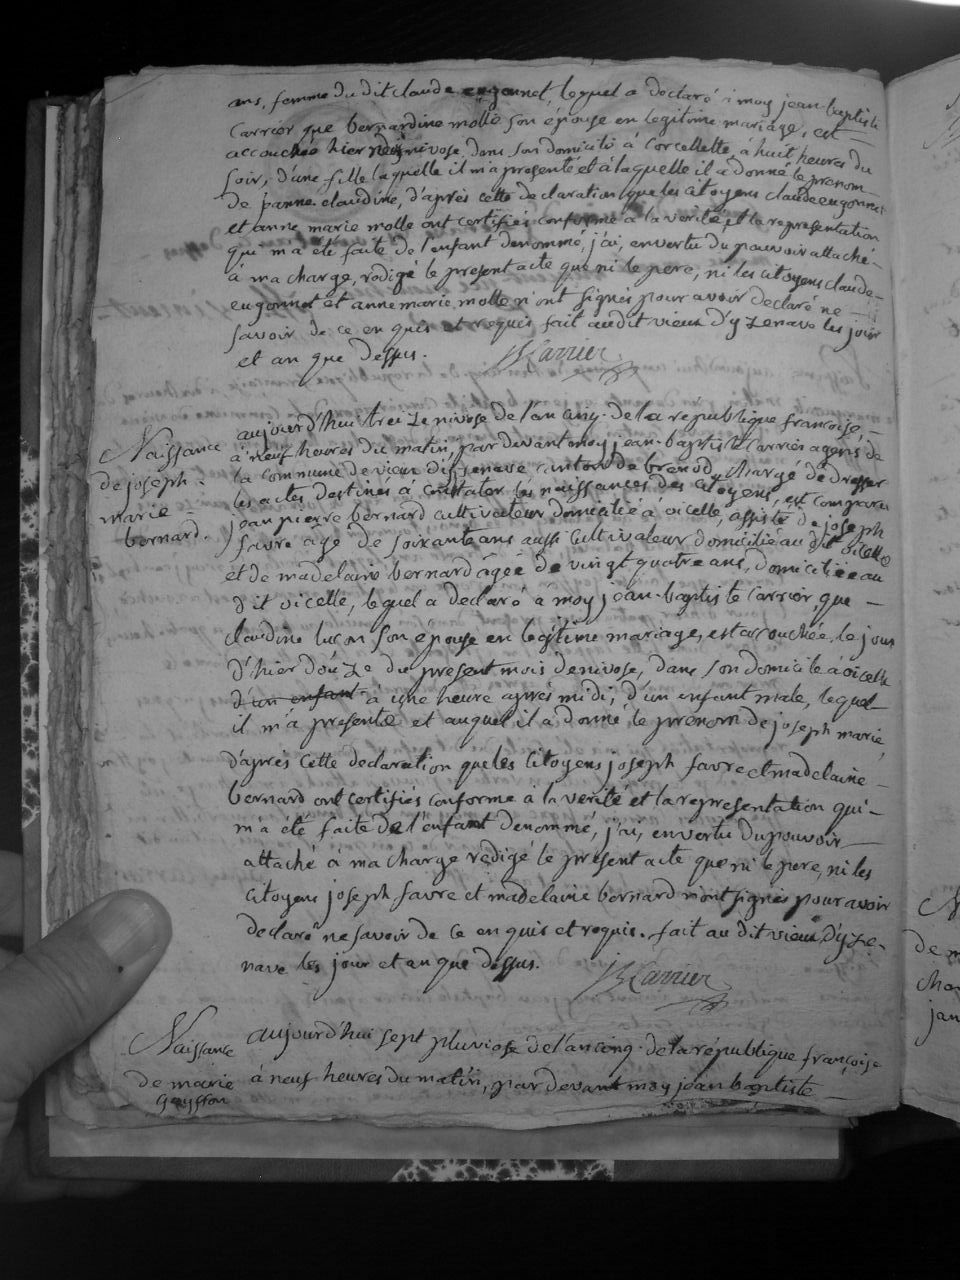 ans, femme du dit claude eugonnet, lequel a declaré à moy jean-baptiste
Carrier que bernardine molle son épouse en legitime mariage, est
accouchée hier nivose, dans son domicile à Corcellette, a huit heures du
soir, d'une fille laquelle il m'a presenté et à laquelle il a donné le prenom
de jeanne claudine, d'après cette declaration que les citoyens claude eugonnet
et anne marie molle ont certifiés conforme à la verité, et la representation
qui m'a été faite de l'enfant denommé, j'ai, en vertu du pouvoir attaché
à ma charge, redigé le present acte que ni le pere, ni les citoyens claude
eugonnet et anne marie molle n'ont signés pour avoir declaré ne
savoir de ce enquis et requis fait audit vieux d'yzenave les jour
et an que dessus. JBCarrier
Naissance
de joseph
marie
bernard.
aujourd'hui treize nivose de l'an cinq de la republique françoise,
à neuf heures du matin, par devant moy jean-baptiste Carrier agent de
la commune de vieux d'issenave canton de brenod, chargé de dresser
les actes destinés à constater les naissances des citoyens, est comparu
jean pierre bernard cultivateur domicilié à oicelle, assisté de joseph
favre age de soixante ans aussi cultivateur domicilié au dit oicelle
et de madelaine bernard agée de vingt quatre ans, domiciliée au
dit oicelle, lequel a declaré à moy jean-baptiste Carrier, que
claudine luçon son épouse en legitime mariage, est accouchée, le jour
d'hier douze du present mois de nivose, dans son domicile à oicelle
d'un enfant à une heure après midi, d'un enfant male, lequel
il m'a presenté et auquel il a donné le prenom de joseph marie,
d'après cette declaration que les citoyens joseph favre et madelaine
bernard ont certifiés conforme à la verité et la representation qui
m'a été faite de l'enfant denommé, j'ai, en vertu du pouvoir
attaché à ma charge redigé le present acte que ni le pere, ni les
citoyens joseph favre et madelaine bernard n'ont signés pour avoir
declaré ne savoir de ce enquis et requis. fait au dit vieux d'yze-
nave les jour et an que dessus. JBCarrier
Naissance
de marie
Goyffon
aujourd'hui sept pluviose de l'an cinq de la république françoise
à neuf heures du matin, par devant moy jean baptiste